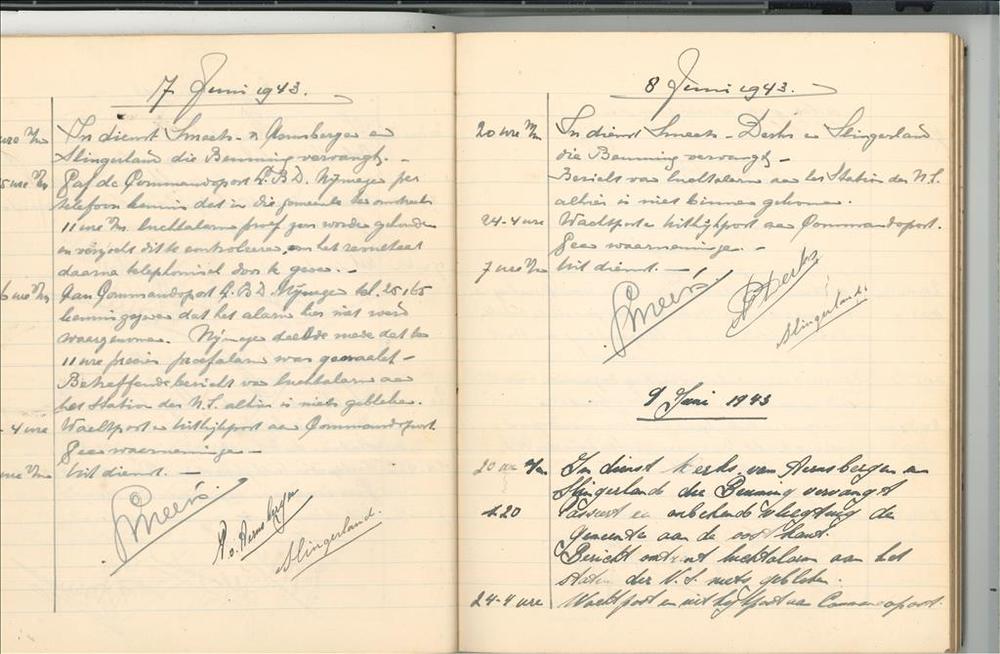 7 Juni 1943.
uro n/m In dienst Smeets - v Aernsbergen en
Slingerland die Benning vervangt. -
5 ure n/m Gaf de Commandopost L.B.D. Nijmegen per
telefoon kennis dat in die gemeente te omstreeks
11 ure n/m. luchtalarm proef zou worden gehouden
en verzocht dit te controleeren, en het resultaat
daarna telephonisch door te geven. -
6 ure n/m Aan Commandopost L.B.D. Nijmegen tel. 25165
kennisgegeven dat het alarm hier niet werd
waargenomen. Nijmegen deelde mede dat te
11 ure precies proefalarm was gemaakt -
Betreffende bericht van luchtalarm aan
het Station der N.S. alhier is niets gebleken.
- 4 ure Wachtpost en uitkijkpost aan Commandopost.
Geen waarnemingen -
ure v/m Uit dienst. -
Smeets
v. Aernsbergen
Slingerland.
8 Juni 1943.
20 ure n/m In dienst Smeets - Derks en Slingerland
die Benning vervangt -
Bericht van luchtalarm aan het Station der N.S.
alhier is niet binnen gekomen.
24-4 ure Wachtpost en uitkijkpost aan Commandopost.
Geen waarnemingen. -
7 ure v/m Uit dienst. -
Smeets
Derks
Slingerland.
9 Juni 1943
20 ure n/m In dienst Derks van Aernsbergen en
Slingerland die Benning vervangt
1.20 Passeert een onbekend vliegtuig de
gemeente aan de oostkant.
Bericht omtrent luchtalarm aan het
station der N.S. niets gebleken.
24-4 ure Wachtpost en uitkijkpost aan Commandopost.